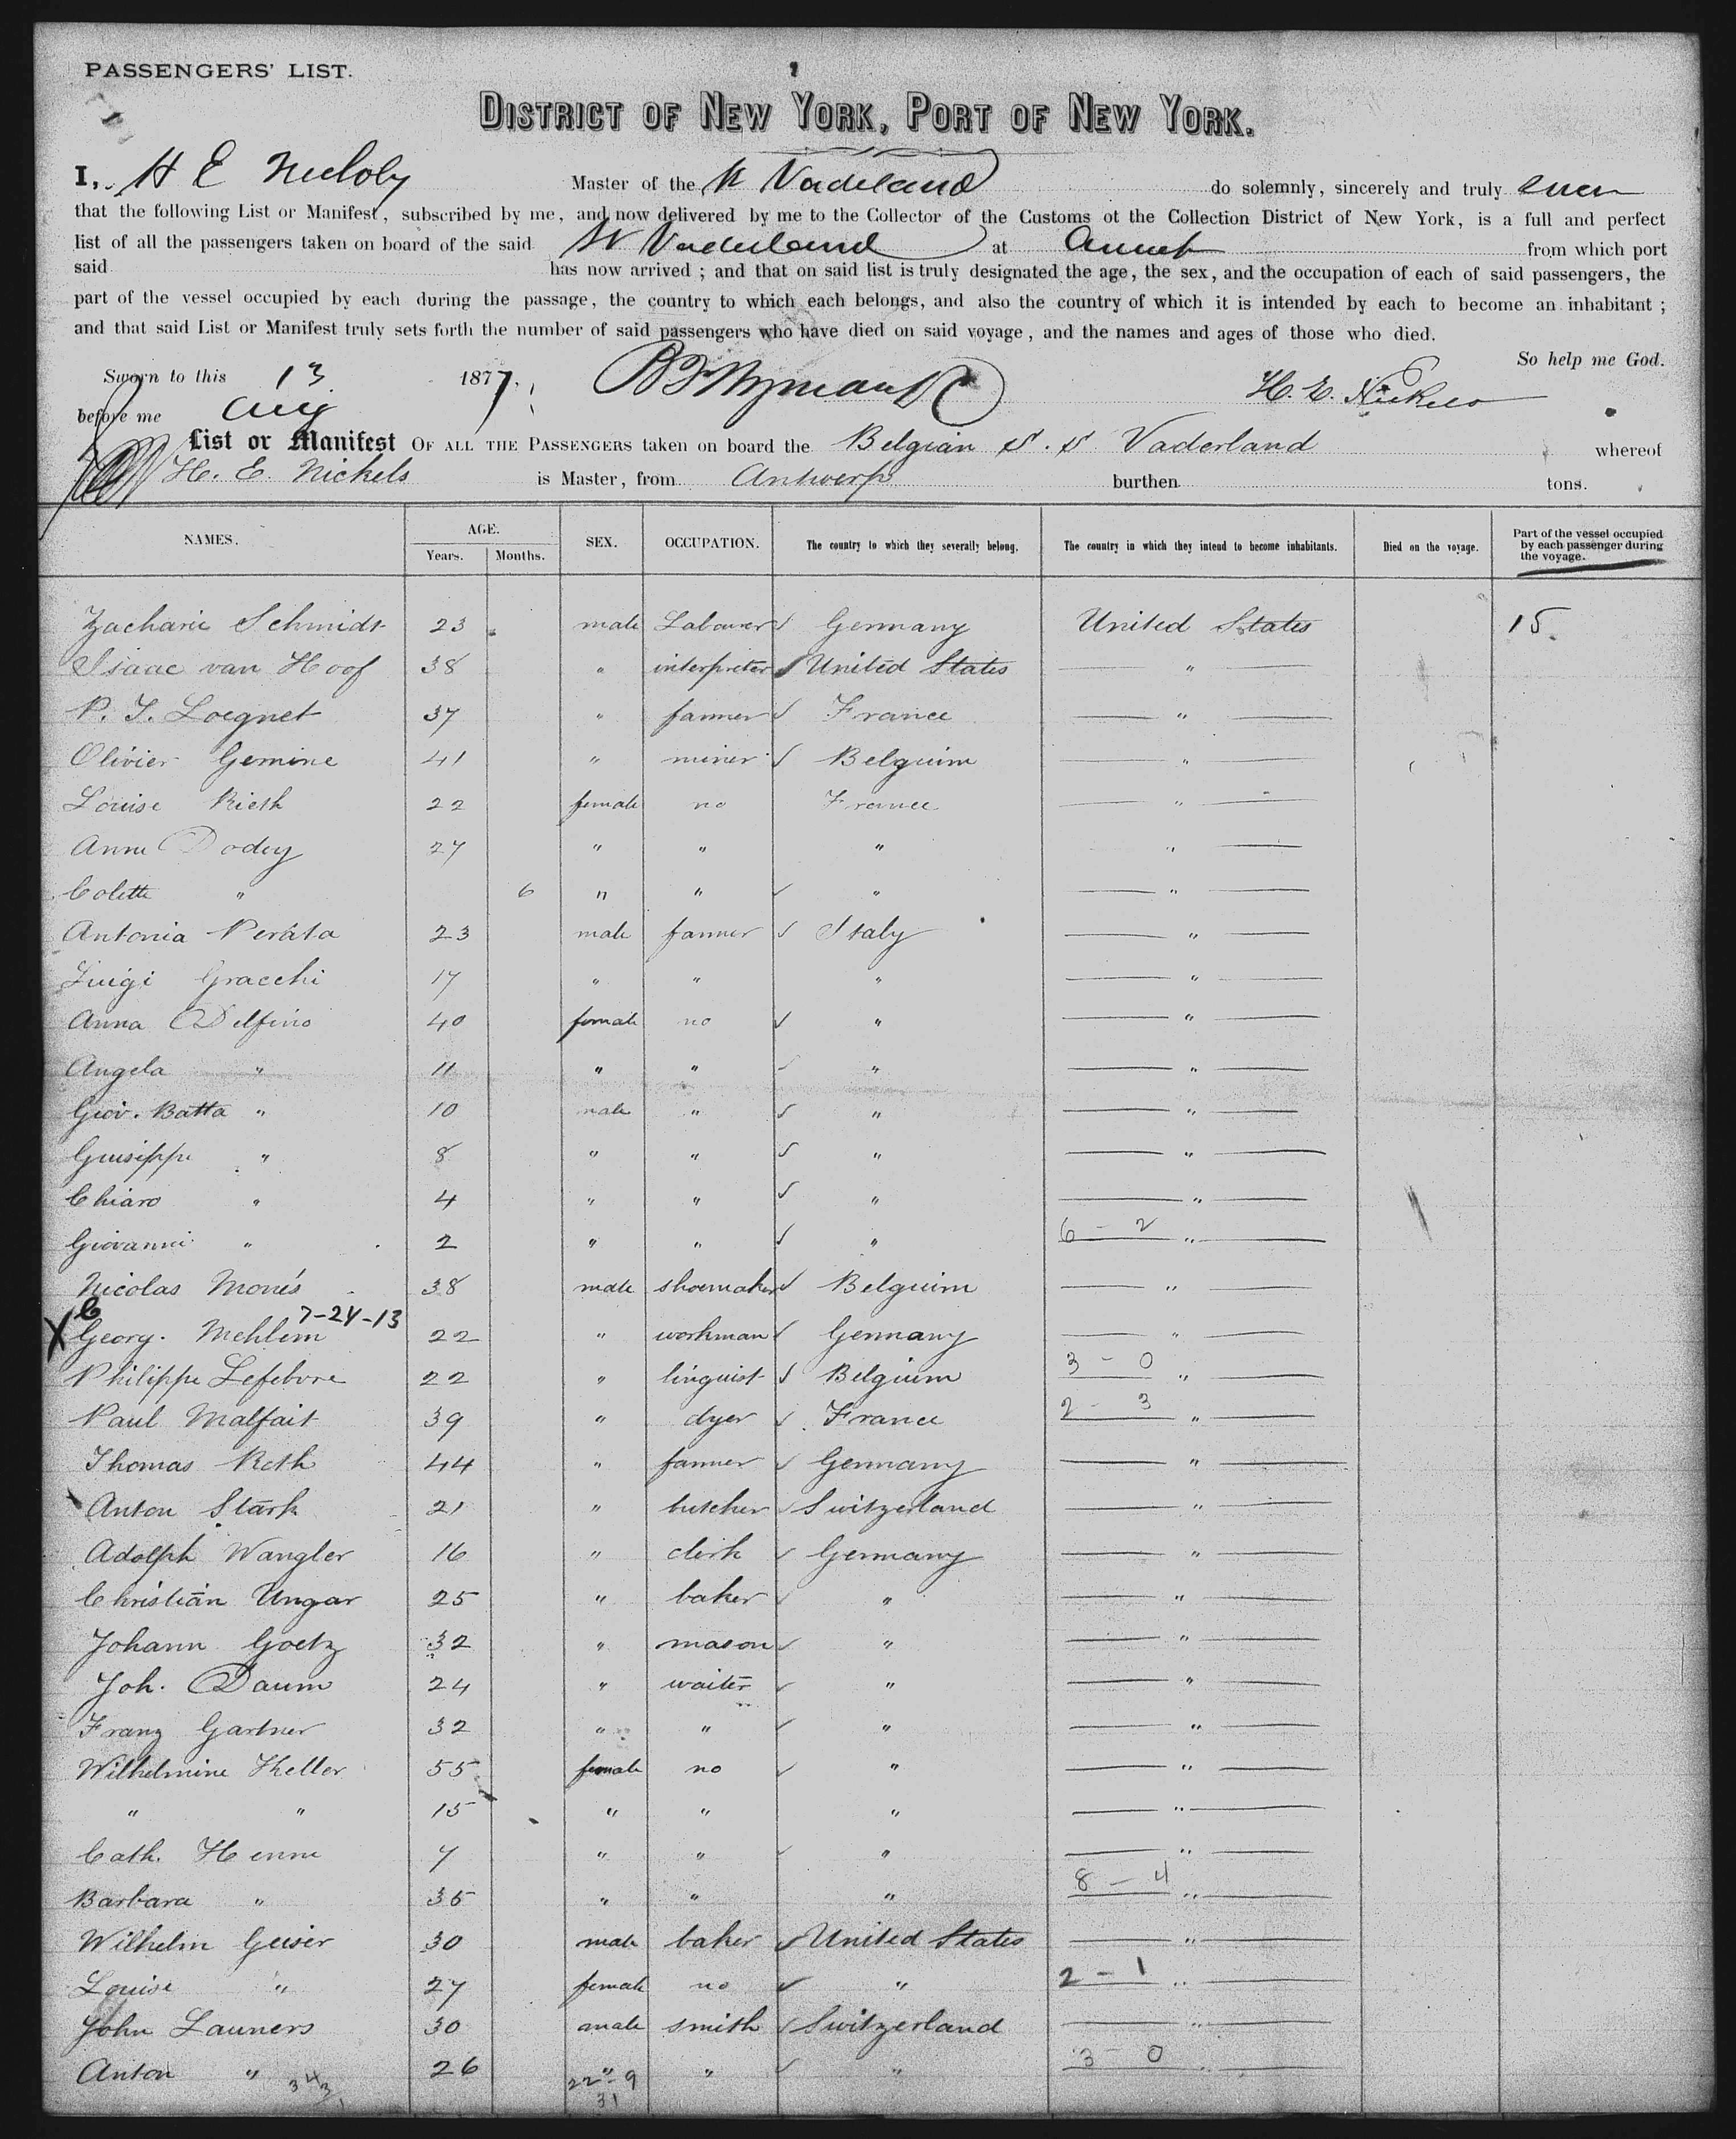 PASSENGERS' LIST.
DISTRICT OF NEW YORK, PORT OF NEW YORK.
I, H E Master of the do solemnly, sincerely and truly
that the following List or Manifest, subscribed by me, and now delivered by me to the Collector of the Customs ot the Collection District of New York, is a full and perfect
list of all the passengers taken on board of the said at from which port
said has now arrived ; and that on said list is truly designated the age, the sex, and the occupation of each of said passengers, the
part of the vessel occupied by each during the passage, the country to which each belongs, and also the country of which it is intended by each to become an inhabitant ;
and that said List or Manifest truly sets forth the number of said passengers who have died on said voyage, and the names and ages of those who died.
So help me God.
Sworn to this 13 1877.
before me Aug H. E. Nickels
List or Manifest OF ALL THE PASSENGERS taken on board the Belgian S. S Vaderland whereof
H. E. Nickels is Master, from Antwerp burthen tons.
NAMES. AGE. Years. Months. SEX. OCCUPATION. The country to which they severally belong. The country in which they intend to become inhabitants. Died on the voyage. Part of the vessel occupied by each passenger during the voyage.
Zacharie Schmidt 23 male Labourer Germany United States 15.
Isaac van Hoof 38 " interpreter United States "
P. J. Loegnet 37 " farmer France "
Olivier Gemine 41 " miner Belguim "
Louise Rieth 22 female no France "
Anna Dodey 27 " " " "
Colette " 6 " " " "
Antonia Perata 23 male farmer Italy "
Luigi Gracchi 17 " " " "
Anna Delfino 40 female no " "
Angela " 11 " " " "
Giov. Batta " 10 male " " "
Guisippe " 8 " " " "
Chiaro " 4 " " " "
Giovanni " 2 " " " 6 - 2 "
Nicolas Monés 38 male shoemaker Belguim "
X C 7-24-13
Georg. Mehlem 22 " workman Germany "
Philippe Lefebvre 22 " linguist Belgium 3 - 0 "
Paul Malfait 39 " dyer France 2 - 3 "
Thomas Roth 44 " farmer Germany "
Anton Stark 21 " butcher Switzerland "
Adolph Wangler 16 " clerk Germany "
Christian Ungar 25 " baker " "
Johann Goetz 32 " mason " "
Joh. Daum 24 " waiter " "
Franz Gartner 32 " " " "
Wilhelmine Keller 55 female no " "
" " 15 " " " "
Cath. Henne 7 " " " "
Barbara " 35 " " " 8 - 4 "
Wilhelm Geiser 30 male baker United States "
Louise " 27 female no " 2 - 1 "
John Launers 30 male smith Switzerland "
Anton " 26 " " " 3 - 0 "
343 22 - 9
31